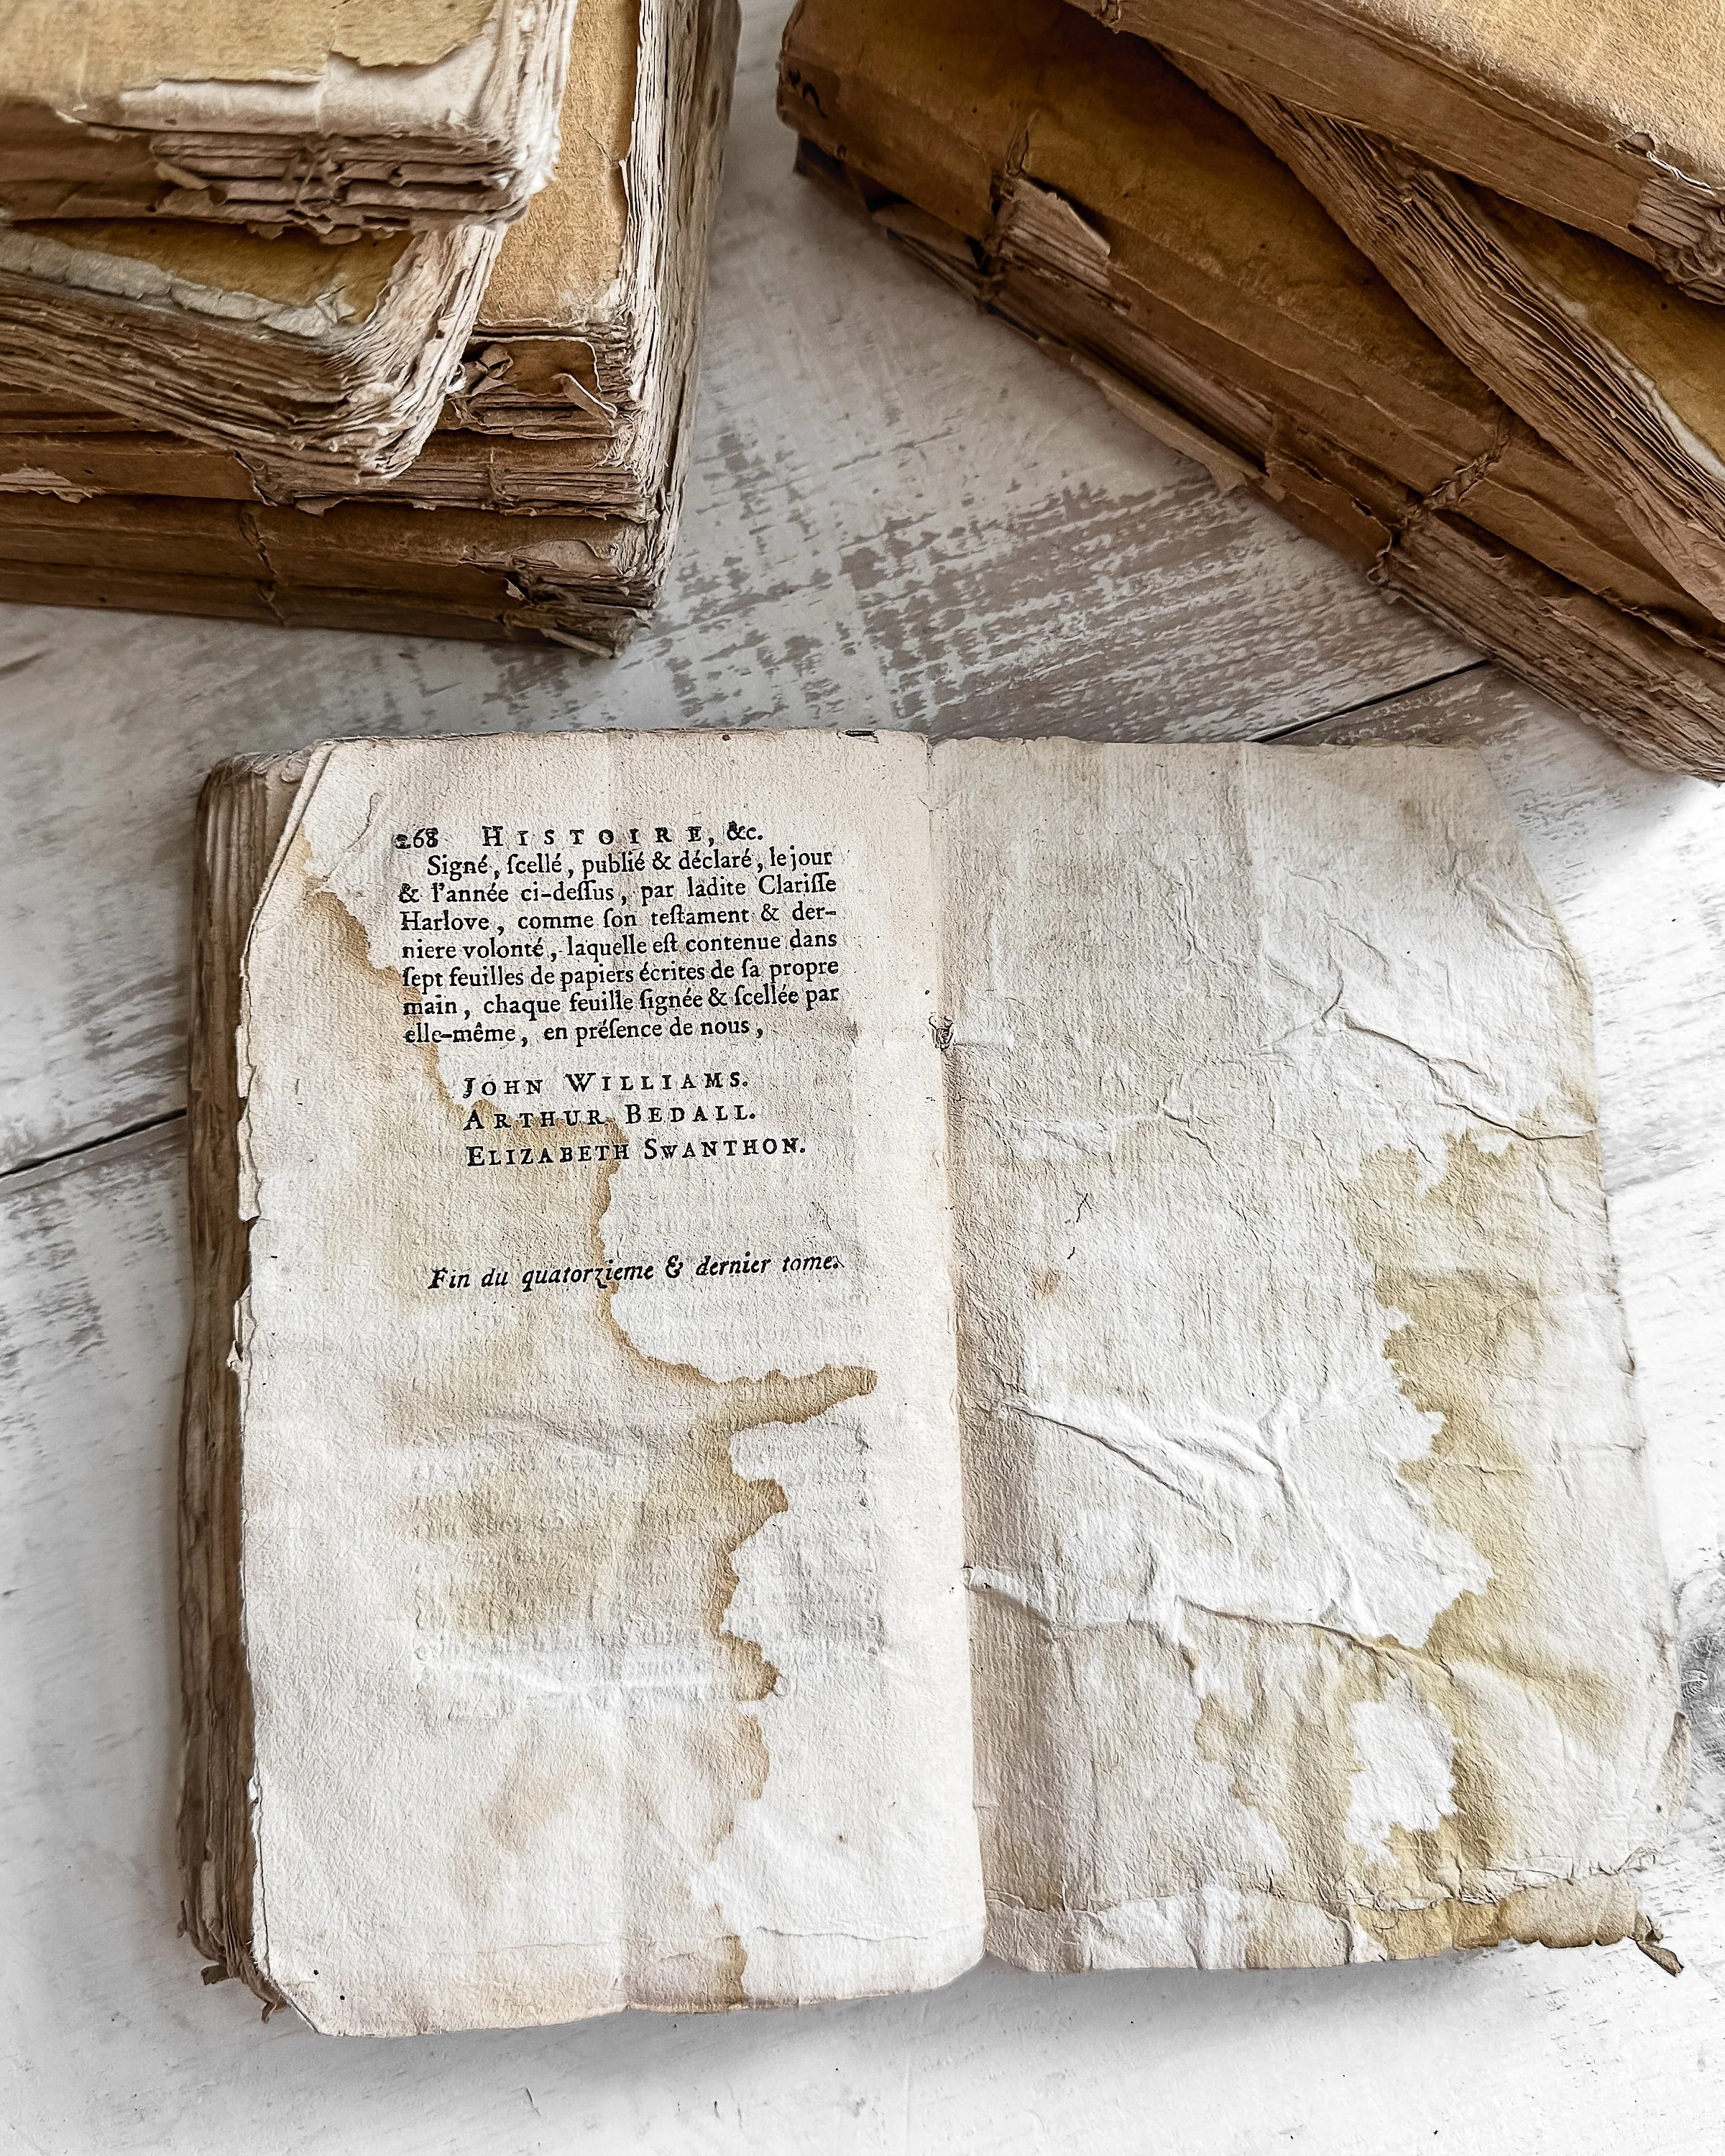 268 HISTOIRE, &c.
Signé, ſcellé, publié & déclaré, le jour
& l'année ci-deſſus, par ladite Clariſſe
Harlove, comme ſon teſtament & der-
niere volonté, laquelle eſt contenue dans
ſept feuilles de papiers écrites de ſa propre
main, chaque feuille ſignée & ſcellée par
elle-même, en préſence de nous,
JOHN WILLIAMS.
ARTHUR BEDALL.
ELIZABETH SWANTHON.
Fin du quatorzieme & dernier tome.